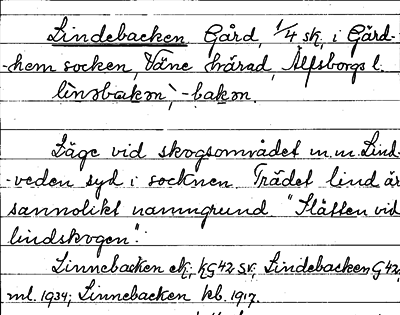 Lindebacken Gård, 1/4 sk, i Gärd-
-hem socken, Väne härad, Älfsborgs l.
linəbakən, -bakən.
Läge vid skogsområdet m.m. Lind-
-veden syd i socknen. Trädet lind är
sannolikt namngrund "Slätten vid
lindskogen".
Linnebacken ek; KG42 sv; Lindebacken G42,
ml. 1934; Linnebacken kb. 1917.